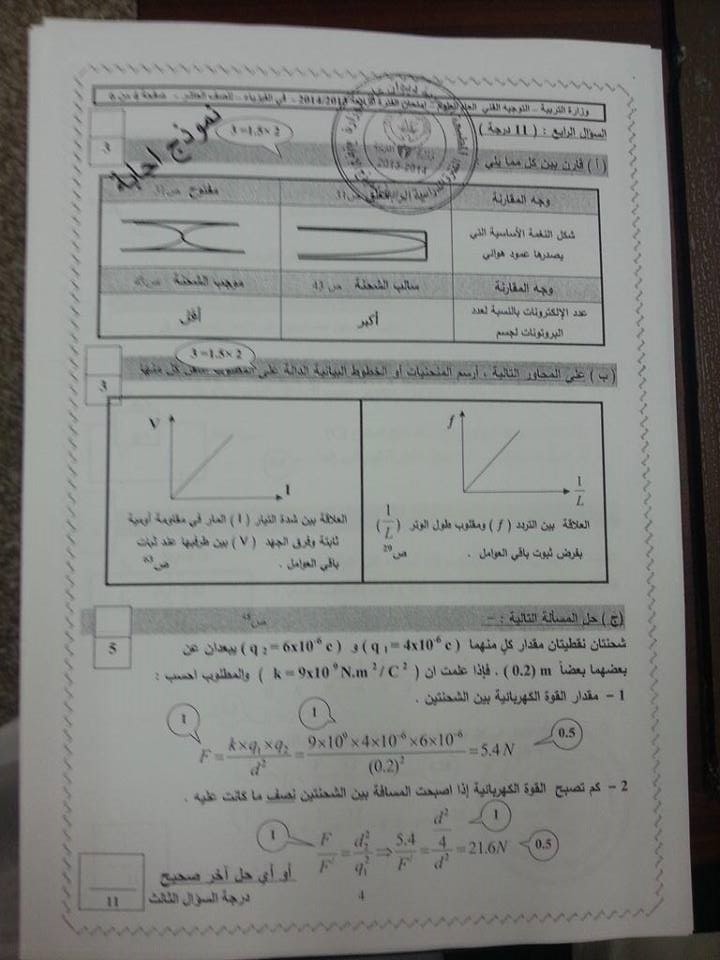 وزارة التربية – التوجيه الفني العام للعلوم – امتحان الفترة الرابعة 2014/2013 – في الفيزياء – للصف العاشر – صفحة
السؤال الرابع : ( 11 درجة )
نموذج اجابة
2013-2014
3 =1.5× 2
3
( أ ) قارن بين كل مما يلي :
وجه المقارنة
مغلق
مفتوح
شكل النغمة الأساسية التي
يصدرها عمود هوائي
وجه المقارنة
سالب الشحنة ص 43
موجب الشحنة
عدد الإلكترونات بالنسبة لعدد
البروتونات لجسم
أكبر
أقل
3 =1.5× 2
3
( ب ) على المحاور التالية ، أرسم المنحنيات أو الخطوط البيانية الدالة على المطلوب كل منها
f
1/L
العلاقة بين التردد ( f ) ومقلوب طول الوتر (1/L)
بفرض ثبوت باقي العوامل . ص29
V
I
العلاقة بين شدة التيار ( I ) المار في مقاومة أومية
ثابتة وفرق الجهد ( V ) بين طرفيها عند ثبات
باقي العوامل . ص63
( ج ) حل المسألة التالية : –
5
شحنتان نقطيتان مقدار كل منهما ( q 1 = 4x10-6 c ) و ( q 2 = 6x10-6 c ) يبعدان عن
بعضهما بعضاً m ( 0.2 ) . فإذا علمت ان ( k = 9x10 9 N.m 2 / C 2 ) والمطلوب احسب :
1 – مقدار القوة الكهربائية بين الشحنتين .
1
1
0.5
F = k×q1×q2 / d2 = 9×109×4×10-6×6×10-6 / (0.2)2 = 5.4 N
2 – كم تصبح القوة الكهربائية إذا اصبحت المسافة بين الشحنتين نصف ما كانت عليه .
1
1
0.5
F/F/ = d22/q12 ⇒ 5.4/F/ = d2/4 / d2 = 21.6N
أو أي حل آخر صحيح
11
درجة السؤال الثالث
4